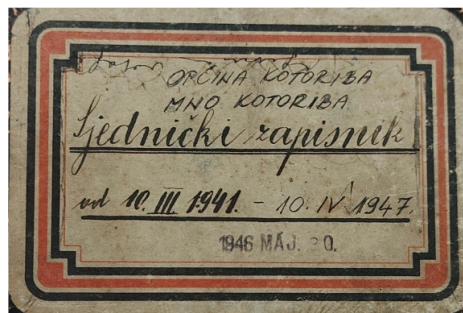 OPĆINA KOTORIBA
MNO KOTORIBA
Sjednički zapisnik
od 10. III. 1941. - 10. IV 1947.
1946 MÁJ. 30.